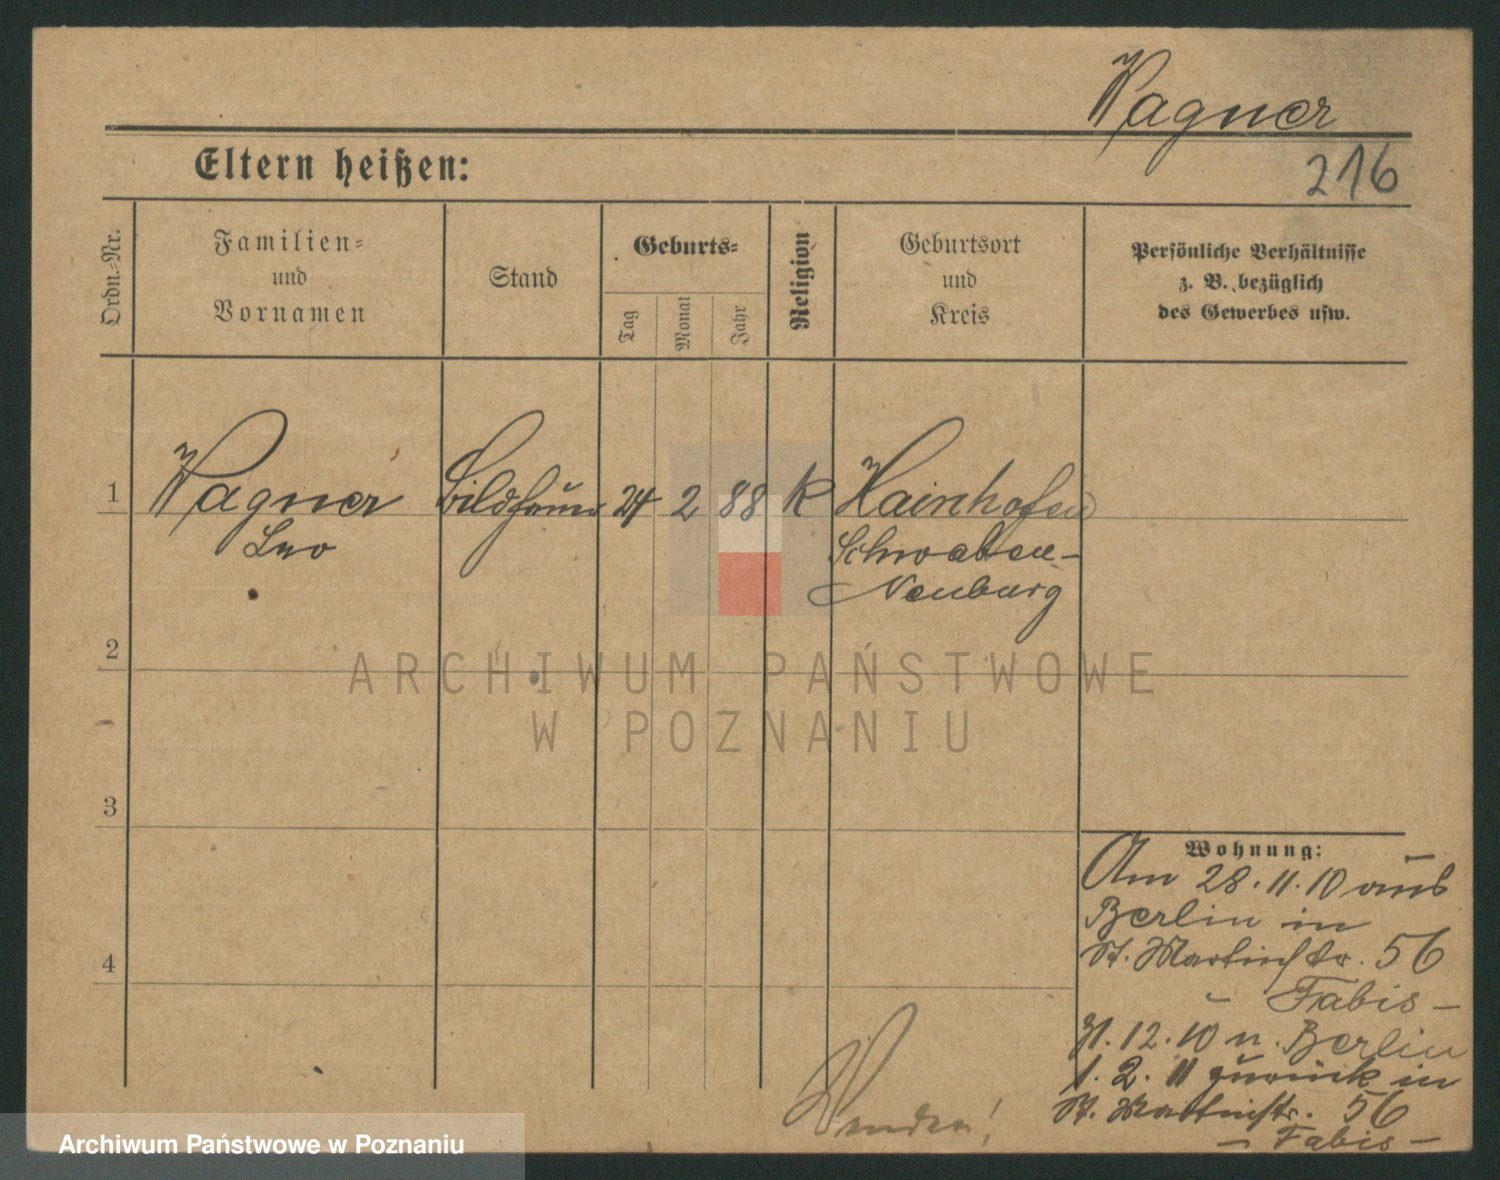 Wagner
216
Eltern heißen:
Ordn.-Nr.
Familien-
und
Vornamen
Stand
Geburts-
Tag
Monat
Jahr
Religion
Geburtsort
und
Kreis
Persönliche Verhältnisse
z. B. bezüglich
des Gewerbes usw.
1
Wagner
Leo
Bildhauer
24
2
88
K
Hainhofen
Schwaben-
Neuburg
2
3
4
ARCHIWUM PAŃSTWOWE
W POZNANIU
Wohnung:
Am 28.11.10 aus
Berlin in
St. Martinstr. 56
- Fabis -
12.10 n. Berlin
1. 2. 11 zurück in
St. Martinstr. 56
- Fabis -
Wenden!
Archiwum Państwowe w Poznaniu